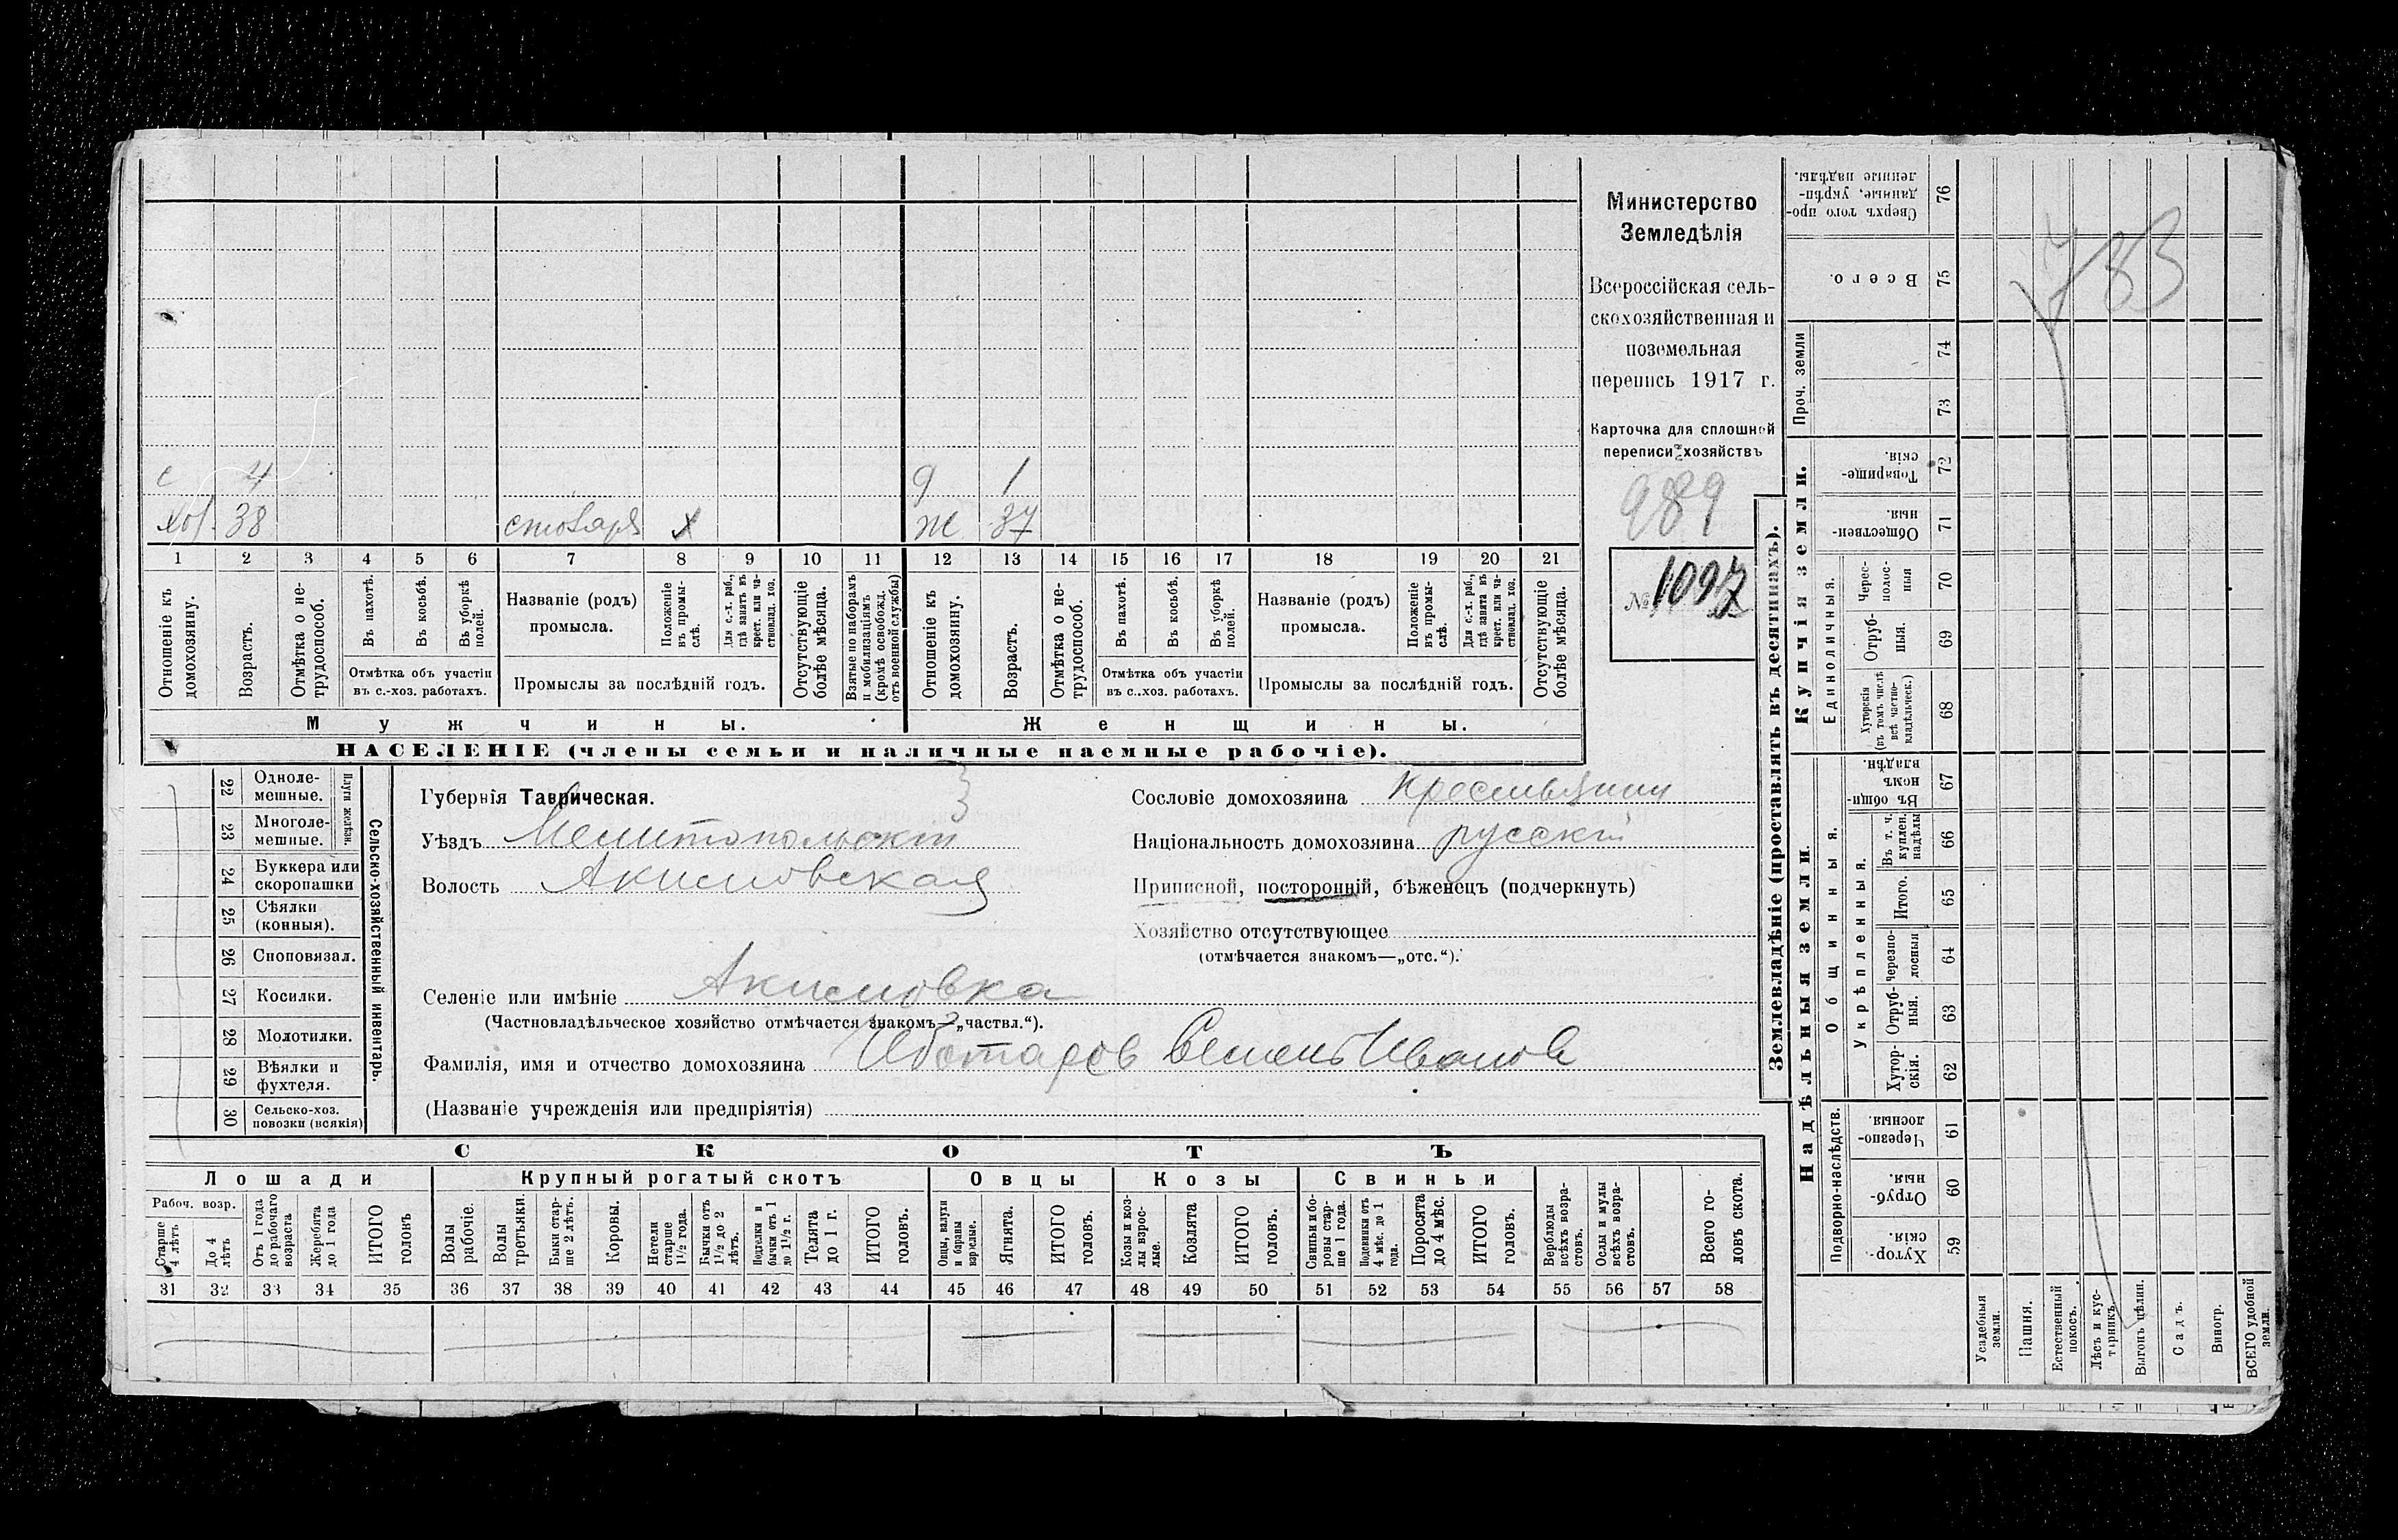 Министерство
Земледѣлія
Всероссійская сель-
скохозяйственная и
поземельная
перепись 1917 г.
Карточка для сплошной
переписи хозяйствъ
989
№ 1097
783
с 4
Хоз. 38 столяръ х
д 1
ж 37
1 2 3 4 5 6 7 8 9 10 11 12 13 14 15 16 17 18 19 20 21
Отношеніе къ домохозяину.
Возрастъ.
Отмѣтка о не-трудоспособ.
Въ пахотѣ.
Въ косьбѣ.
Въ уборкѣ полей.
Отмѣтка объ участіи
въ с.-хоз. работахъ.
Названіе (родъ)
промысла.
Положеніе въ промы-слѣ.
Для с.-х. раб., гдѣ занятъ въ крест. или ча-ствовлад. хоз.
Промыслы за послѣдній годъ.
Отсутствующіе болѣе мѣсяца.
Взятые по наборамъ и мобилизаціямъ (кромѣ освобожд. отъ военной службы)
Отношеніе къ домохозяину.
Возрастъ.
Отмѣтка о не-трудоспособ.
Въ пахотѣ.
Въ косьбѣ.
Въ уборкѣ полей.
Отмѣтка объ участіи
въ с.-хоз. работахъ.
Названіе (родъ)
промысла.
Положеніе въ промы-слѣ.
Для с.-х. раб., гдѣ занята въ крест. или ча-ствовлад. хоз.
Промыслы за послѣдній годъ.
Отсутствующіе болѣе мѣсяца.
Мужчины.
Женщины.
НАСЕЛЕНІЕ (члены семьи и наличные наемные рабочіе).
Сельско-хозяйственный инвентарь.
Плуги желѣзн.
22 Одноле-мешные.
23 Многоле-мешные.
24 Буккера или скоропашки
25 Сѣялки (конныя).
26 Сноповязал.
27 Косилки.
28 Молотилки.
29 Вѣялки и фухтеля.
30 Сельско-хоз. повозки (всякія)
Губернія Таврическая.
Уѣздъ Мелитопольскій
Волость Акимовская
Сословіе домохозяина крестьянин
Національность домохозяина русскій
Приписной, посторонній, бѣженецъ (подчеркнуть)
Хозяйство отсутствующее
(отмѣчается знакомъ—„отс.“).
Селеніе или имѣніе Акимовка
(Частновладѣльческое хозяйство отмѣчается знакомъ—„частвл.“).
Фамилія, имя и отчество домохозяина Семенъ Иванов
(Названіе учрежденія или предпріятія)
СКОТЪ
Лошади
Крупный рогатый скотъ
Овцы
Козы
Свиньи
Рабоч. возр.
Старше 4 лѣтъ
До 4 лѣтъ
Отъ 1 года до рабочаго возраста
Жеребята до 1 года
ИТОГО головъ
Волы рабочіе.
Волы третьяки.
Быки стар-ше 2 лѣтъ.
Коровы.
Нетели старше 1½ года.
Бычки отъ 1½ до 2 лѣтъ.
Подтелки и бычки отъ 1 до 1½ г.
Телята до 1 г.
ИТОГО головъ.
Овцы, валухи и бараны взрослые.
Ягнята.
ИТОГО головъ.
Козы и коз-лы взрос-лые.
Козлята
ИТОГО головъ.
Свиньи и бо-ровы стар-ше 1 года.
Подсвинки отъ 4 мѣс. до 1 года.
Поросята до 4 мѣс.
ИТОГО головъ.
Верблюды всѣхъ возра-стовъ.
Ослы и мулы всѣхъ возра-стовъ.
Всего го-ловъ скота.
31 32 33 34 35 36 37 38 39 40 41 42 43 44 45 46 47 48 49 50 51 52 53 54 55 56 57 58
Землевладѣніе (проставлять въ десятинахъ).
Надѣльныя земли.
Купчія земли.
Проч. земли
Подворно-наслѣдств.
Общинныя.
Укрѣпленныя.
Единоличныя.
Сверхъ того про-данные, укрѣп-ленные надѣлы. 76
Всего. 75
74
73
Товарище-скія. 72
Обществен-ныя. 71
Черес-полос-ныя 70
Отруб-ныя. 69
Хуторскія (въ томъ числѣ всѣ частно-владѣльческ.) 68
Въ общин-номъ владѣн. 67
Въ т. ч. куплен. надѣлы 66
Итого. 65
Черезпо-лосныя 64
Отруб-ныя. 63
Хутор-скія. 62
Черезпо-лосныя. 61
Отруб-ныя. 60
Хутор-скія. 59
Усадебныя земли.
Пашня.
Естественный покосъ.
Лѣсъ и кус-тарникъ.
Выгонъ цѣлин.
Садъ.
Виногр.
ВСЕГО удобной земли.